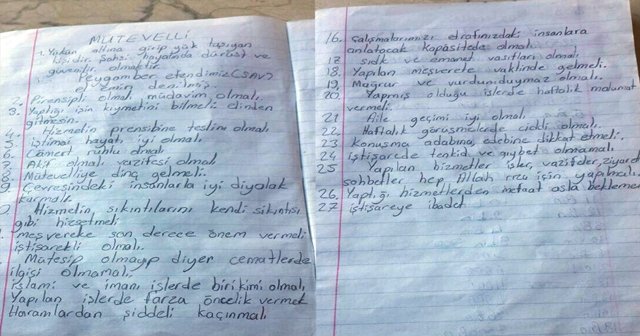 MÜTEVELLİ
1. Yükün altına girip yük taşıyan
kişidir. Şahsi hayatında dürüst ve
güvenilir olmaktır.
Peygamber efendimize (SAV)
el emin denilmiş
2. Pirensipli olmalı müdavim olmalı,
3. Yaptığı işin kıymetini bilmeli dinden
gitmesin.
4. Hizmetin prensibine teslim olmalı
5. içtimai hayatı iyi olmalı
6 Cömert ruhlu olmalı
7 Aktif olmalı vazifesi olmalı
8 Mütevelliye dinç gelmeli.
9 Çevresindeki insanlarla iyi diyolak
kurmalı.
0 Hizmetin sıkıntılarını kendi sıkıntısı
gibi hissetmeli
meşvereke son derece önem vermeli
istişarekli olmalı.
Mütesip olmayıp diyer cematlerde
ilgisi olmamalı.
islami ve imanı işlerde birikimi olmalı
Yapılan işlerde farza öncelik vermek
Haramlardan şiddeli kaçınmalı
16. Çalışmalarımızı etrafınızdaki insanlara
anlatacak kapasitede olmalı.
17 sıdk ve emanet vasıfları olmalı
18. Yapılan meşverete vaktinde gelmeli.
19. Mağrur ve vurdumduymaz olmalı.
20. Yapmış olduğu işlerde haftalık malumat
vermeli
21 Aile geçimi iyi olmalı
22. Haftalık görüşmelerde ciddi olmalı.
23 Konuşma adabına, edebine dikkat etmeli,
24 istişarede tenkid ve gıybet olmamalı
25 Yapılan hizmetler işler, vazifeler, ziyaret
sohbetler hep Allah rızası için yapılmalı.
26. Yaptığı hizmetlerden menfaat asla beklemez
27 istişareye ibadet